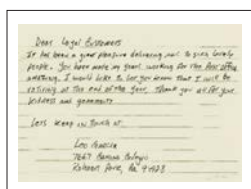 Dear Loyal Customers
It has been a great pleasure delivering mail to such lovely
people. You have made my years working for the Post Office
I would like to let you know that I will be
retiring at the end of the year. Thank you all for your
kindness and generosity
Lets keep in touch at:
Leo
Rohnert Park, Ca